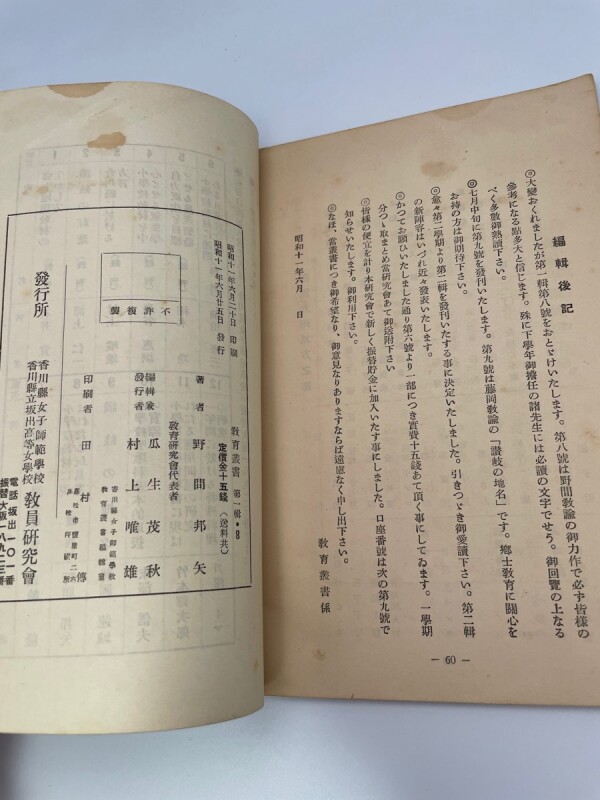 編輯後記
◎大變おくれましたが第一輯第八號をおとゞけいたします。第八號は野間敎諭の御力作で必ず皆様の
參考になる點多大と信じます。殊に下學年御擔任の諸先生には必讀の文字でせう。御回覽の上なる
べく多數御熟讀下さい。
◎七月中旬に第九號を發刊いたします。第九號は藤岡敎諭の「讃岐の地名」です。鄕土敎育に關心を
お持の方は御期待下さい。
◎愈々第二學期より第二輯を發刊いたする事に決定いたしました。引きつゞき御愛讀下さい。第二輯
の新陣容はいづれ近々發表いたします。
◎かつてお願ひいたしました通り第六號より一部につき實費十五錢あて頂く事にしてゐます。一學期
分づゝ取まとめ當研究會あて御送附下さい
◎皆様の便宜を計り本研究會で新しく振替貯金に加入いたす事にしました。口座番號は次の第九號で
知らせいたします。御利用下さい。
◎なほ、當叢書につき御希望なり、御意見なりありますならば遠慮なく申し出下さい。
昭和十一年六月 日
敎育叢書係
— 60 —
敎育叢書 第一輯・8
定價金十五錢（送料共）
昭和十一年六月二十日 印刷
昭和十一年六月廿五日 發行
不許複製
著者 野間邦矢
敎育硏究會代表者
編輯兼發行者 瓜生茂秋
村上唯雄
香川縣女子師範學校
敎育叢書編輯室
印刷者 田村傳
發行所
香川縣女子師範學校
香川縣立坂出高等女學校
敎員研究會
電話坂出一〇一番